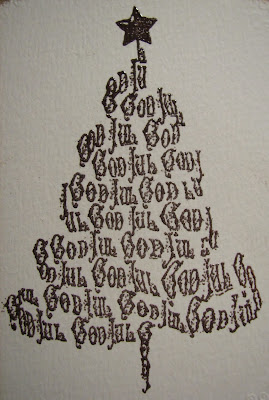 God Jul
God Jul
God Jul God
God Jul God J
God Jul God Ju
ul God Jul God J
God Jul God Jul
God Jul God Jul God
God Jul God Jul God Jul
God Jul God Jul God Jul God Jul